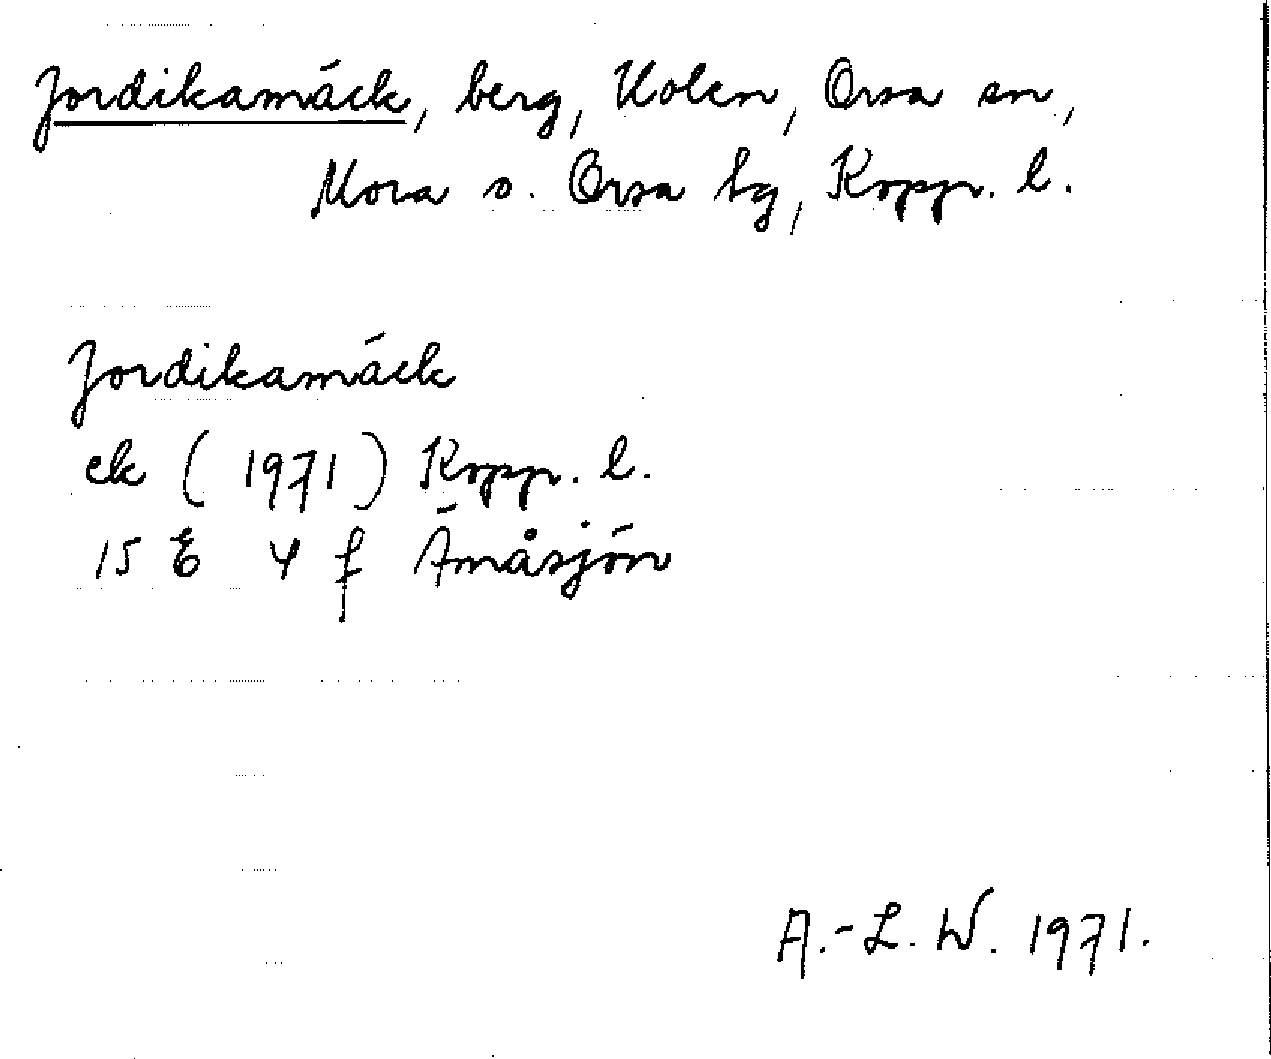 Jordikamäck, berg, Kolen, Orsa sn,
Mora o. Orsa tg, Kopp. l.
Jordikamäck
ek (1971) Kopp. l.
15 E 4 f Ämåsjön
A.-L. W. 1971.